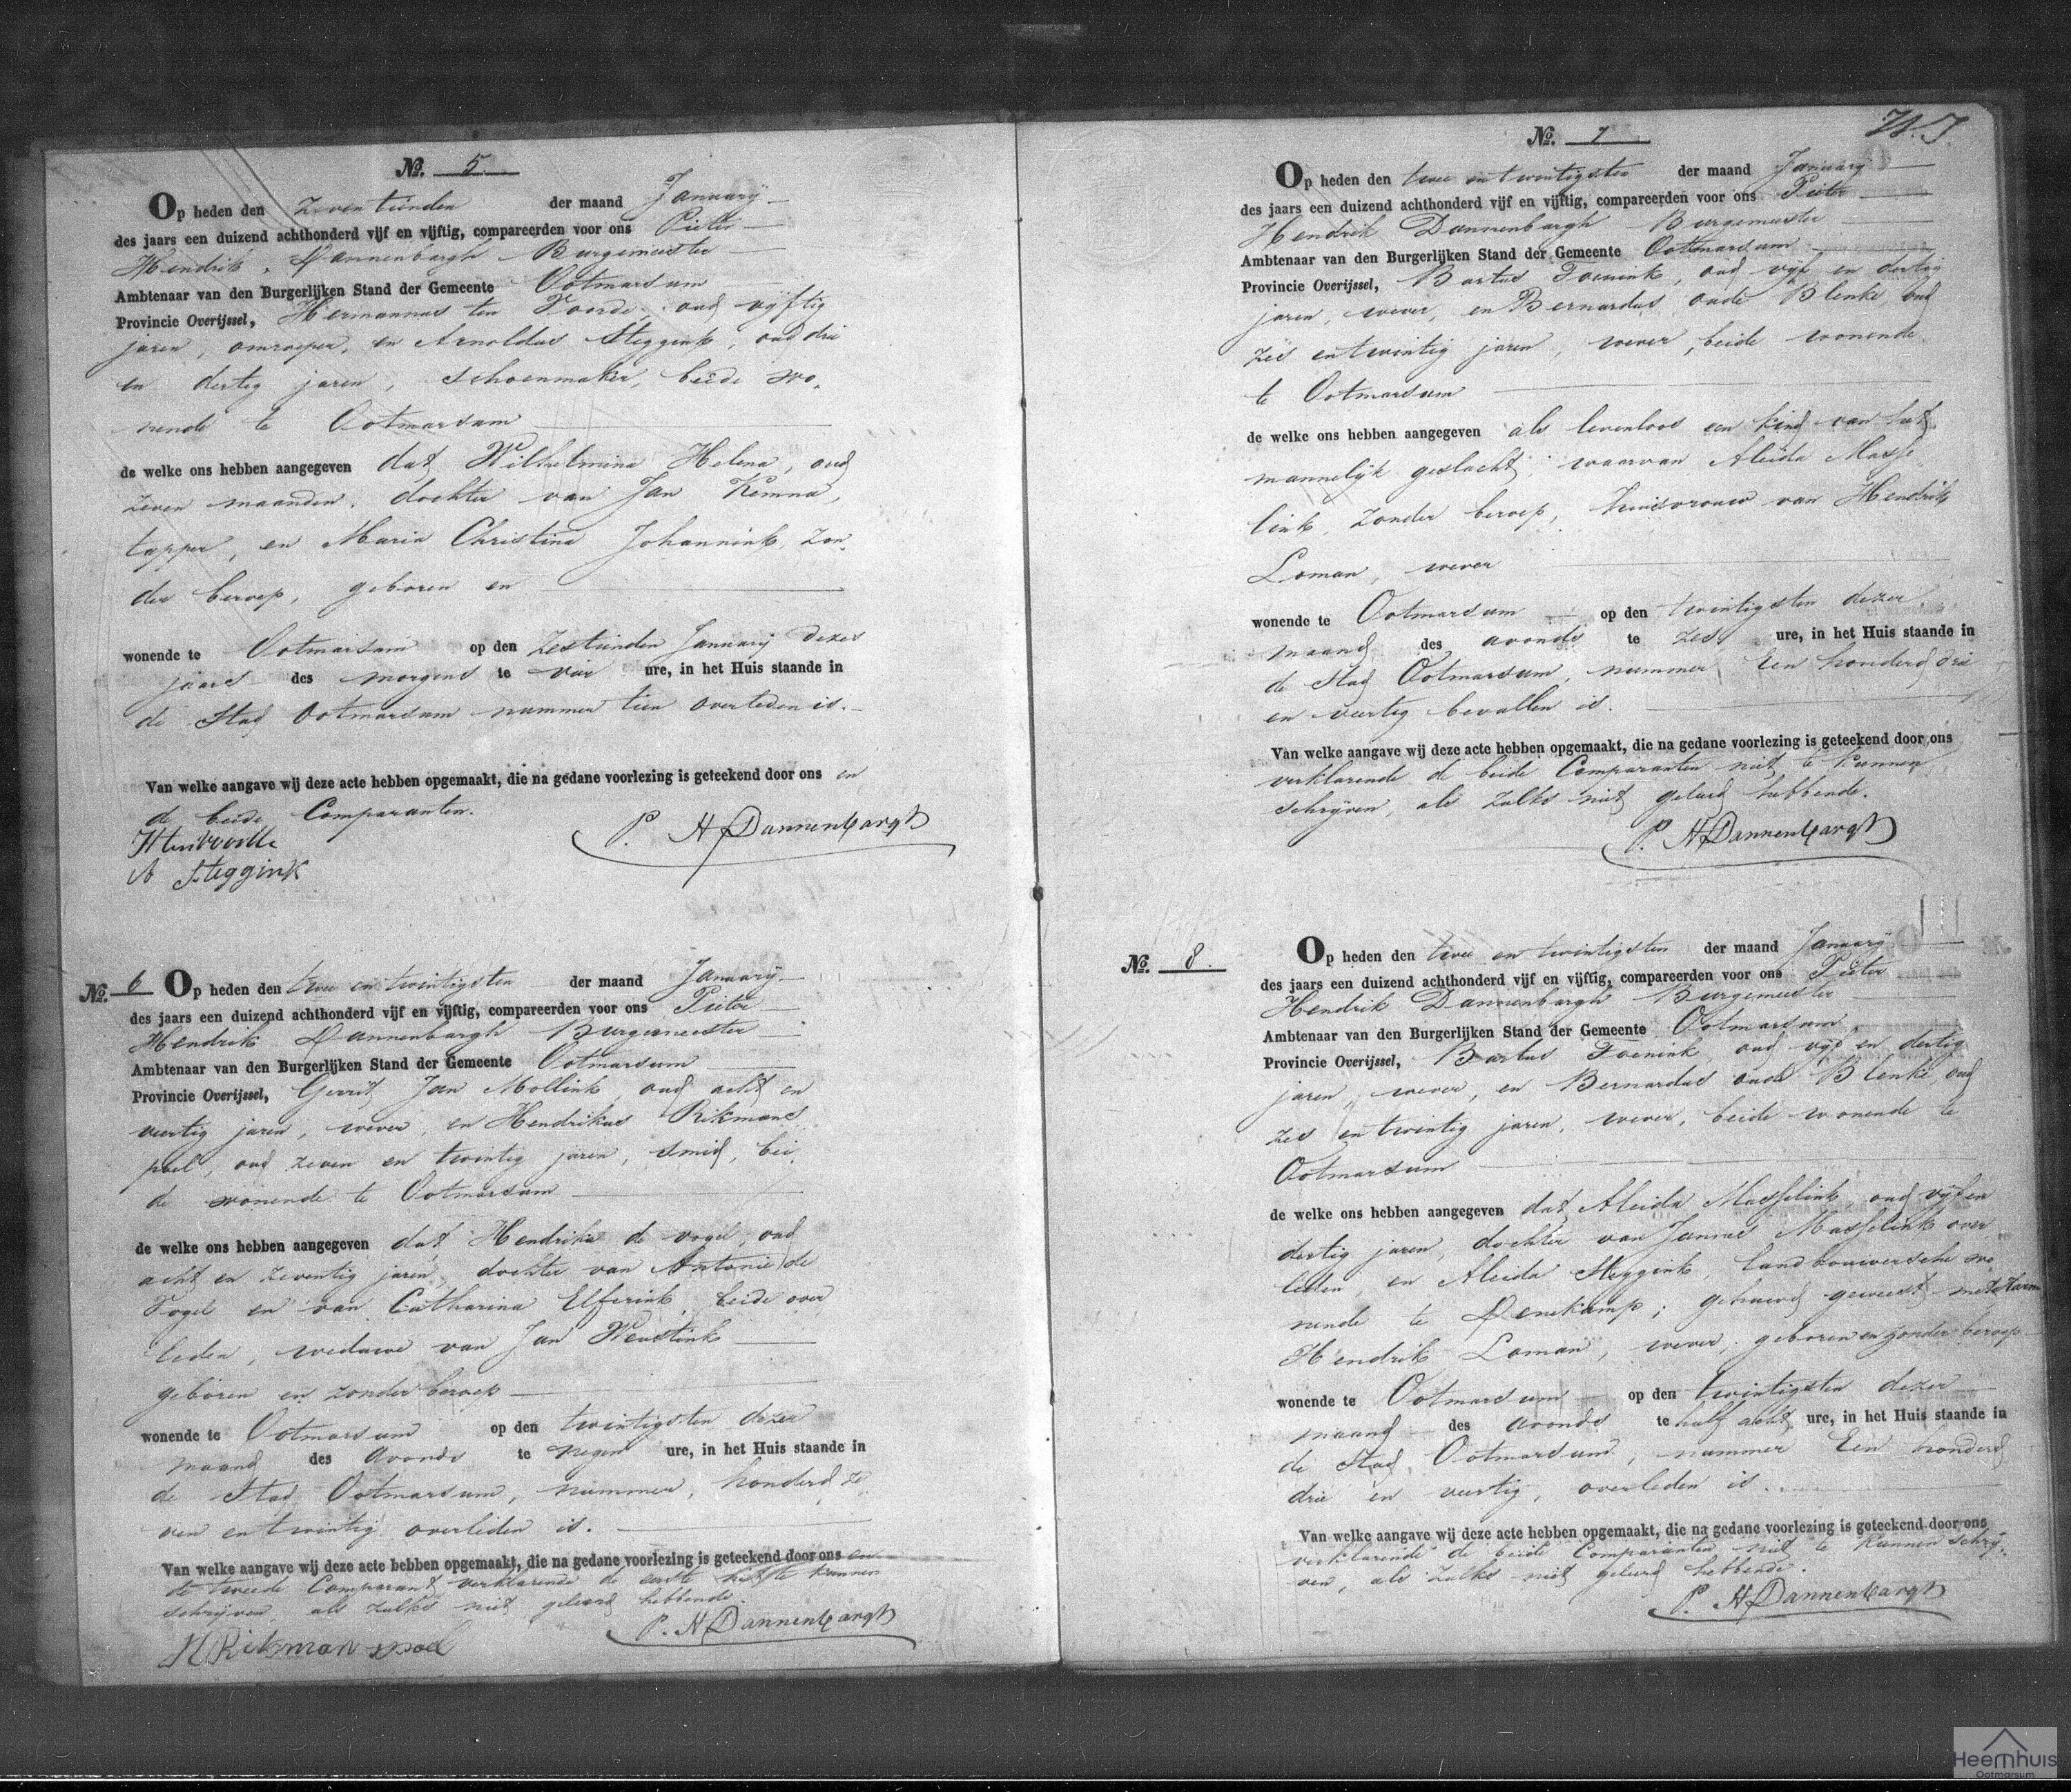 No. 5
Op heden den zeventienden der maand Januarij
des jaars een duizend achthonderd vijf en vijftig, compareerden voor ons Pieter
Hendrik Dannenbargh Burgemeester
Ambtenaar van den Burgerlijken Stand der Gemeente Ootmarsum
Provincie Overijssel, Hermannus ten Voorde, oud vijftig
jaren, omroeper, en Arnoldus Steggink, oud drie
en dertig jaren, schoenmaker, beide wo,
nende te Ootmarsum
de welke ons hebben aangegeven dat Wilhelmina Helena, oud
zeven maanden, dochter van Jan Kemna,
tapper, en Maria Christina Johannink, zon,
der beroep, geboren en
wonende te Ootmarsum op den zestienden Januarij dezes
jaars des morgens te vier ure, in het Huis staande in
de Stad Ootmarsum nummer tien overleden is.
Van welke aangave wij deze acte hebben opgemaakt, die na gedane voorlezing is geteekend door ons en
de beide Comparanten.
P. H Dannenbargh
A Steggink
No. 6 Op heden den twee en twintigsten der maand Januarij
des jaars een duizend achthonderd vijf en vijftig, compareerden voor ons Pieter
Hendrik Dannenbargh Burgemeester
Ambtenaar van den Burgerlijken Stand der Gemeente Ootmarsum
Provincie Overijssel, Gerrit Jan Mollink, oud acht en
veertig jaren, wever, en Hendrikus Rikmans
poel, oud zeven en twintig jaren, smid, bei,
de wonende te Ootmarsum
de welke ons hebben aangegeven dat Hendrika de vogel, oud
acht en zeventig jaren, dochter van Antonie de
Vogel en van Catharina Elferink, beide over
leden, weduwe van Jan Weustink
geboren en zonder beroep
wonende te Ootmarsum op den twintigsten dezer
maand des avonds te negen ure, in het Huis staande in
de Stad Ootmarsum, nummer, honderd ze
ven en twintig overleden is.
Van welke aangave wij deze acte hebben opgemaakt, die na gedane voorlezing is geteekend door ons en
de tweede Comparant verklarende de eerste niet te kunnen
schrijven, als zulks niet geleerd hebbende.
P. H Dannenbargh
H Rikman spoel
No. 7
Op heden den twee en twintigsten der maand Januarij
des jaars een duizend achthonderd vijf en vijftig, compareerden voor ons Pieter
Hendrik Dannenbargh Burgemeester
Ambtenaar van den Burgerlijken Stand der Gemeente Ootmarsum
Provincie Overijssel, Bartus Foenink, oud vijf en dertig
jaren, wever, en Bernardus oude Blenke, oud
zes en twintig jaren, wever, beide wonende
te Ootmarsum
de welke ons hebben aangegeven als levenloos een kind van het
mannelijk geslacht, waarvan Aleida Masse
link, zonder beroep, huisvrouw van Hendrik
Loman, wever
wonende te Ootmarsum op den twintigsten dezer
maand des avonds te zes ure, in het Huis staande in
de Stad Ootmarsum, nummer Een honderd drie
en veertig bevallen is.
Van welke aangave wij deze acte hebben opgemaakt, die na gedane voorlezing is geteekend door ons
verklarende de beide Comparanten niet te kunnen
schrijven, als zulks niet geleerd hebbende.
P. H Dannenbargh
No. 8.
Op heden den twee en twintigsten der maand Januarij
des jaars een duizend achthonderd vijf en vijftig, compareerden voor ons Pieter
Hendrik Dannenbargh Burgemeester
Ambtenaar van den Burgerlijken Stand der Gemeente Ootmarsum
Provincie Overijssel, Bartus Foenink, oud vijf en dertig
jaren, wever, en Bernardus oude Blenke, oud
zes en twintig jaren, wever, beide wonende te
Ootmarsum
de welke ons hebben aangegeven dat Aleida Masselink, oud vijf en
dertig jaren, dochter van Jannes Masselink over
leden, en Aleida Steggink, landbouwersche wo,
nende te Denekamp; gehuwd geweest met Harm
Hendrik Loman, wever, geboren en zonder beroep
wonende te Ootmarsum op den twintigsten dezer
maand des avonds te half acht ure, in het Huis staande in
de Stad Ootmarsum, nummer Een honderd
drie en veertig, overleden is.
Van welke aangave wij deze acte hebben opgemaakt, die na gedane voorlezing is geteekend door ons
verklarende de beide Comparanten niet te kunnen schrij,
ven, als zulks niet geleerd hebbende.
P. H Dannenbargh
Heemhuis
Ootmarsum